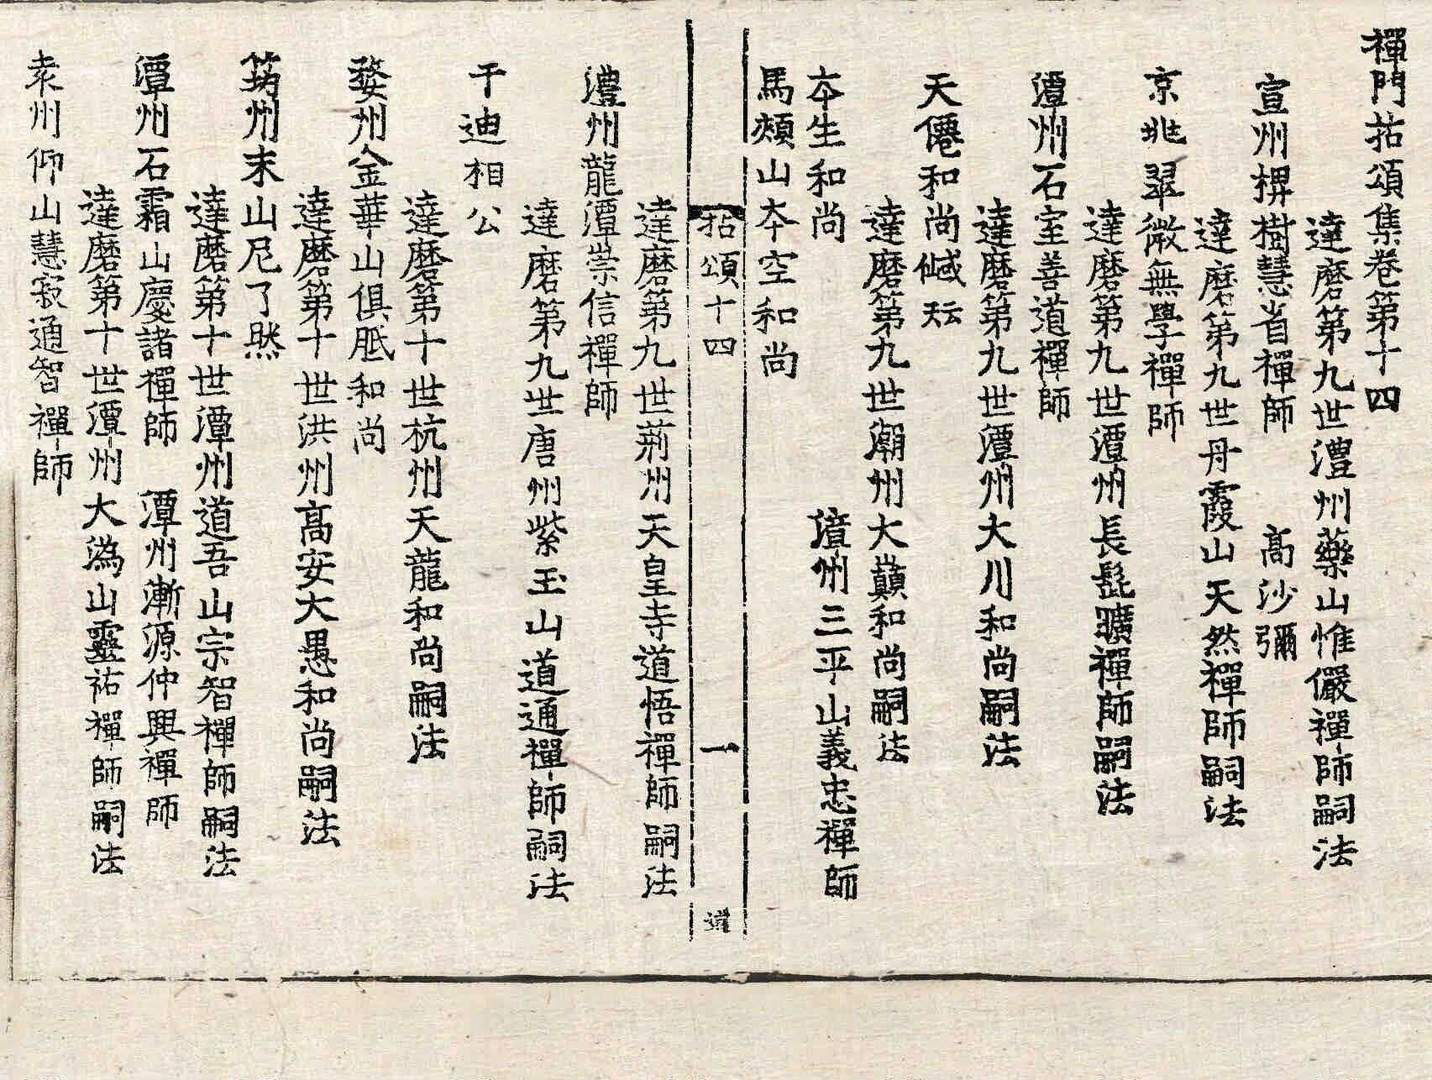 禪門拈頌集卷第十四
達磨第九世澧州藥山惟儼禪師嗣法
宣州椑樹慧省禪師　高沙彌
達磨第九世丹霞山天然禪師嗣法
京兆翠微無學禪師
達磨第九世潭州長髭曠禪師嗣法
潭州石室善道禪師
達磨第九世潭州大川和尚嗣法
天僊和尚
達磨第九世潮州大顛和尚嗣法
夲生和尚　漳州三平山義忠禪師
馬頰山夲空和尚
拈頌十四　一
達磨第九世荊州天皇寺道悟禪師嗣法
澧州龍潭崇信禪師
達磨第九世唐州紫玉山道通禪師嗣法
于迪相公
達磨第十世杭州天龍和尚嗣法
婺州金華山俱胝和尚
達磨第十世洪州高安大愚和尚嗣法
筠州末山尼了然
達磨第十世潭州道吾山宗智禪師嗣法
潭州石霜山慶諸禪師　潭州漸源仲興禪師
達磨第十世潭州大潙山靈祐禪師嗣法
袁州仰山慧寂通智禪師